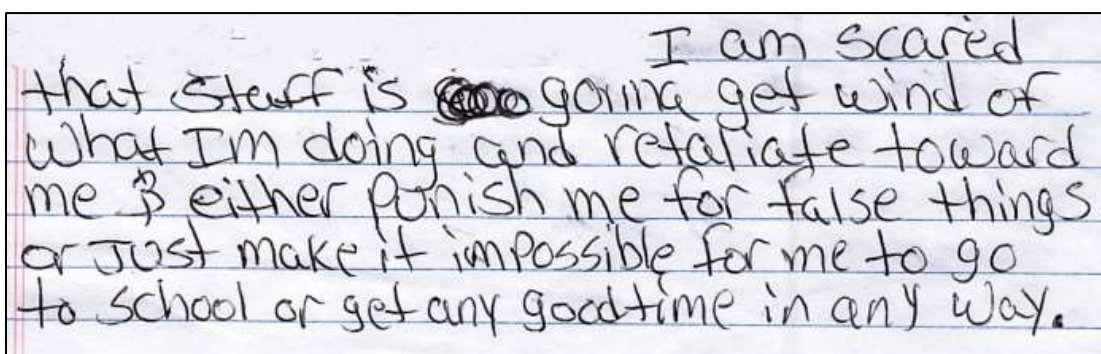 I am scared
that staff is gonna get wind of
what Im doing and retaliate toward
me & either punish me for false things
or Just make it impossible for me to go
to school or get any goodtime in any way.